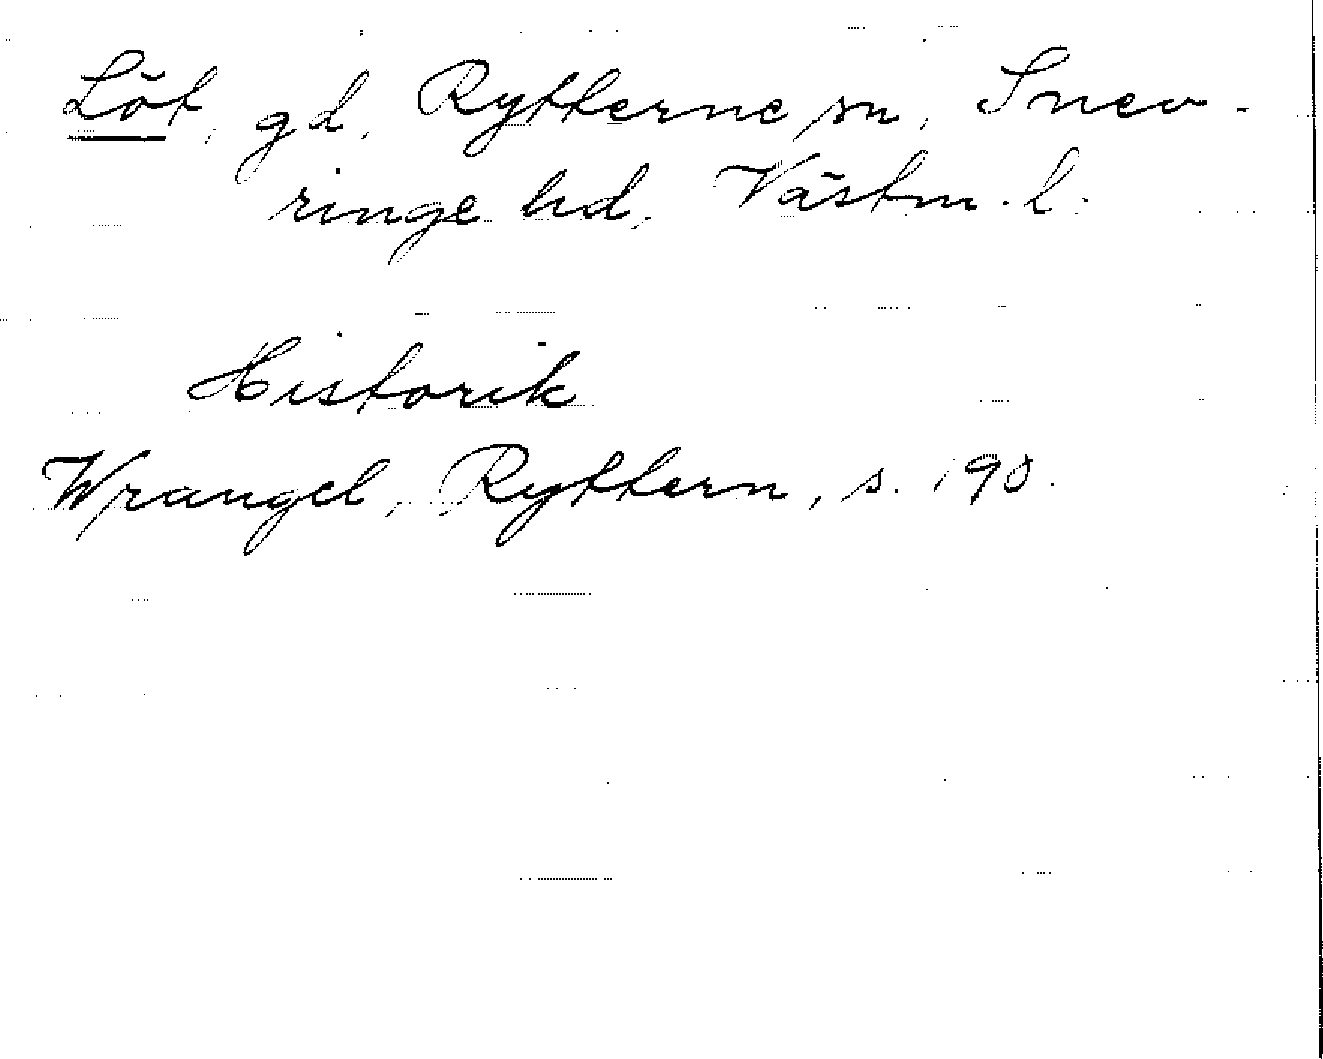 Löt, gd, Rytterne sn, Snev-
ringe hd, Västm. l.
Historik
Wrangel, Ryttern, s. 190.